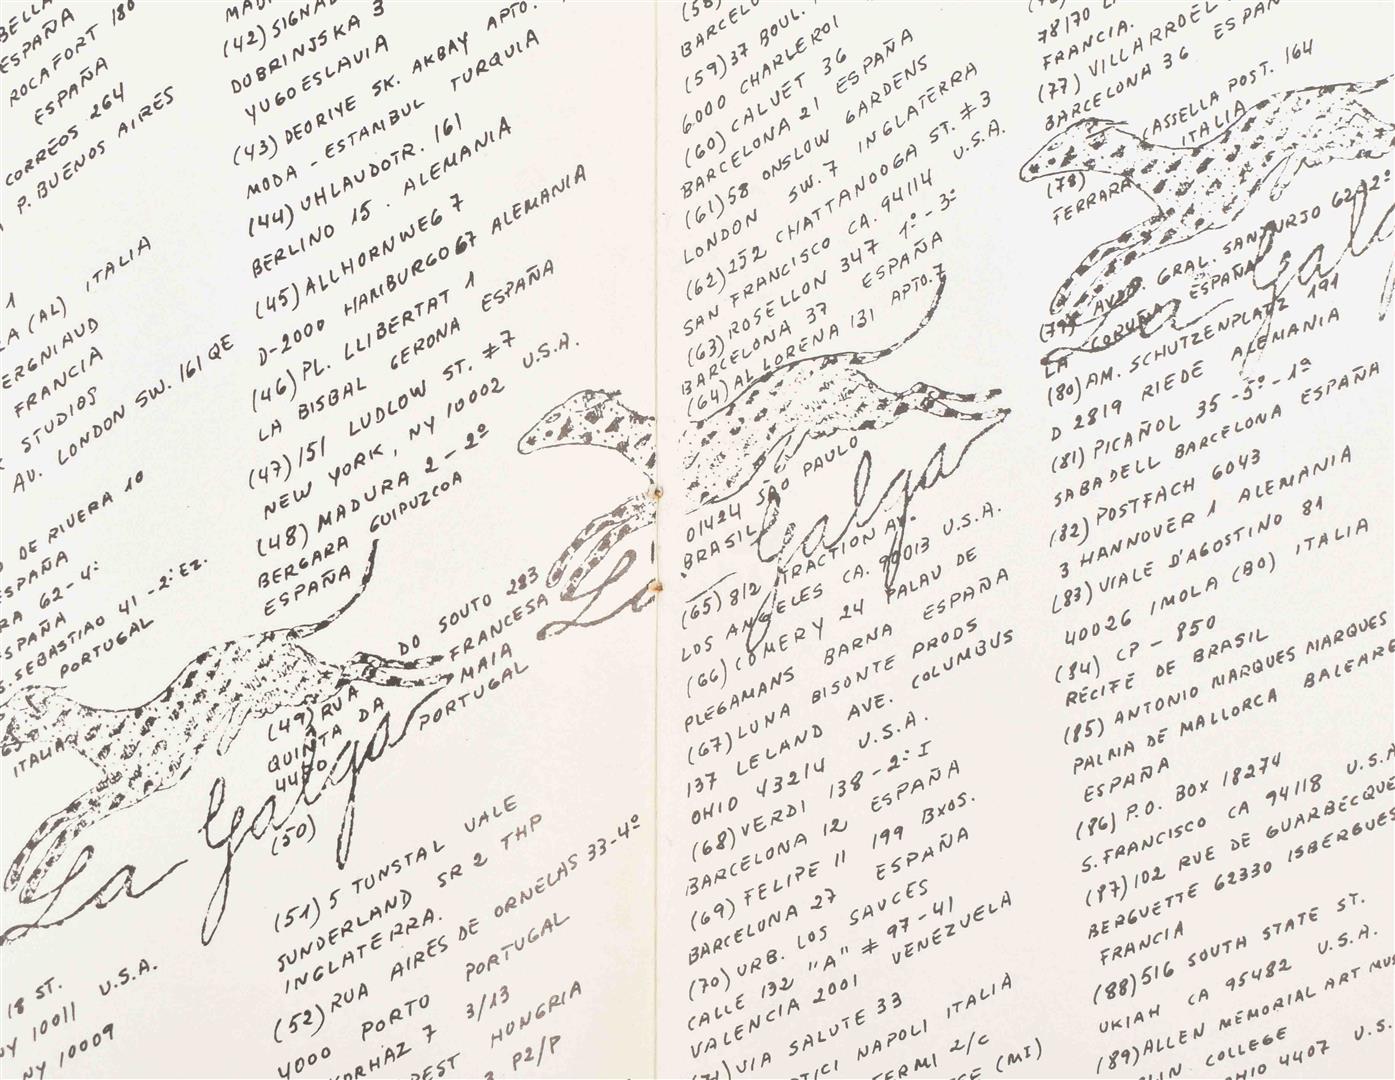 BELLA
ESPAÑA
ROCAFORT 180
ESPAÑA
CORREOS 264
P. BUENOS AIRES
1
A (AL) ITALIA
ERGNIAUD
FRANCIA
STUDIOS
AV. LONDON SW. 161 QE
DE RIVERA 10
ESPAÑA
RA 62-4º
ESPAÑA
S. SEBASTIAO 41-2º EZ.
PORTUGAL
ITALIA
18 ST.
NY 10011 U.S.A.
NY 10009
(42) SIGNAD
DOBRINJSKA 3
YUGOESLAVIA
(43) DEORIYE SK. AKBAY APTO.
MODA - ESTAMBUL TURQUIA
(44) UHLAUDOTR. 161
BERLINO 15. ALEMANIA
(45) ALLHORNWEG 7
D-2000 HAMBURGO 67 ALEMANIA
(46) PL. LLIBERTAT 1
LA BISBAL GERONA ESPAÑA
(47) 151 LUDLOW ST. #7
NEW YORK, NY 10002 U.S.A.
(48) MADURA 2-2º
BERGARA GUIPUZCOA
ESPAÑA
(49) RUA DO SOUTO 223
QUINTA DA FRANCESA
4470 MAIA
PORTUGAL
La Galga
(50)
(51) 5 TUNSTAL VALE
SUNDERLAND SR 2 THP
INGLATERRA.
(52) RUA AIRES DE ORNELAS 33-4º
4000 PORTO PORTUGAL
KORHAZ 7 3/13
PEST HONGRIA
P2/P
(58)
BARCELO
(59) 37 BOUL.
6000 CHARLEROI
(60) CALVET 36
BARCELONA 21 ESPAÑA
(61) 58 ONSLOW GARDENS
LONDON SW.7 INGLATERRA
(62) 252 CHATTANOOGA ST. #3
SAN FRANCISCO CA. 94114 U.S.A.
(63) ROSELLON 347 1º-3º
BARCELONA 37 ESPAÑA
(64) AL LORENA 131 APTO.7
01424 SÃO PAULO
BRASIL
La Galga
(65) 812 TRACTION AV.
LOS ANGELES CA. 90013 U.S.A.
(66) COMERY 24 PALAU DE
PLEGAMANS BARNA ESPAÑA
(67) LUNA BISONTE PRODS
137 LELAND AVE. COLUMBUS
OHIO 43214 U.S.A.
(68) VERDI 138-2º I
BARCELONA 12 ESPAÑA
(69) FELIPE II 199 BXOS.
BARCELONA 27 ESPAÑA
(70) URB. LOS SAUCES
CALLE 132 "A" # 97-41
VALENCIA 2001 VENEZUELA
(71) VIA SALUTE 33
TICI NAPOLI ITALIA
ERMI 2/C
(MI)
78170 LA
FRANCIA.
(77) VILLARROEL
BARCELONA 36 ESPAÑ
(78) CASSELLA POST. 164
FERRARA ITALIA
(79) AVDA. GRAL. SANJURJO 62-2º
LA CORUÑA ESPAÑA
La Galg
(80) AM. SCHUTZENPLATZ 191
D 2819 RIEDE ALEMANIA
(81) PICAÑOL 35-5º-1ª
SABADELL BARCELONA ESPAÑA
(82) POSTFACH 6043
3 HANNOVER 1 ALEMANIA
(83) VIALE D'AGOSTINO 81
40026 IMOLA (BO) ITALIA
(84) CP - 850
RECIFE DE BRASIL
(85) ANTONIO MARQUES MARQUES
PALMA DE MALLORCA BALEARE
ESPAÑA
(86) P.O. BOX 18274
S. FRANCISCO CA 94118 U.S.A
(87) 102 RUE DE GUARBECQUE
BERGUETTE 62330 ISBERGUES
FRANCIA
(88) 516 SOUTH STATE ST.
UKIAH CA 95482 U.S.A.
(89) ALLEN MEMORIAL ART MUS
LIN COLLEGE
OHIO 4407 U.S.